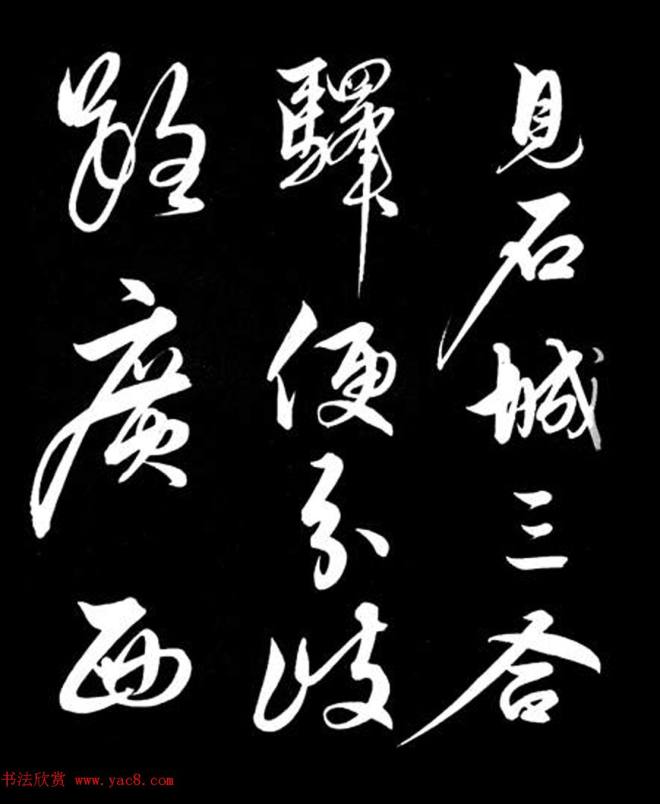 見石城三合
驛便分歧
路廣西
书法欣赏 www.yac8.com